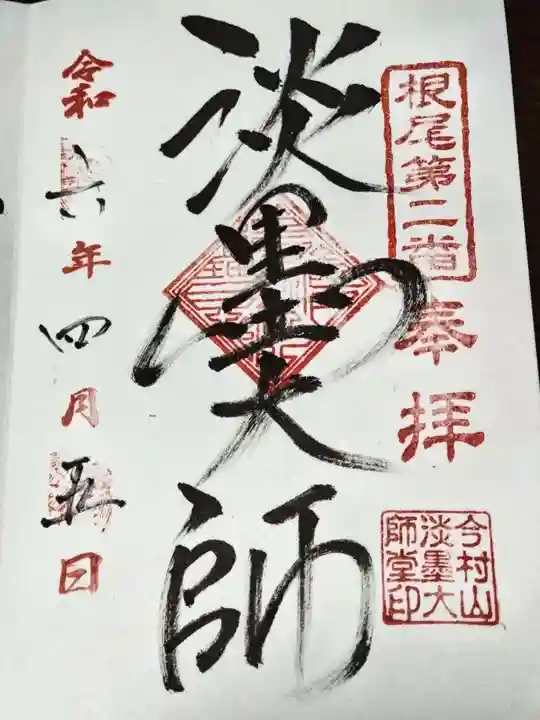 根尾第二番
奉拝
淡墨大師
今村山
淡墨大
師堂印
令和六年四月五日